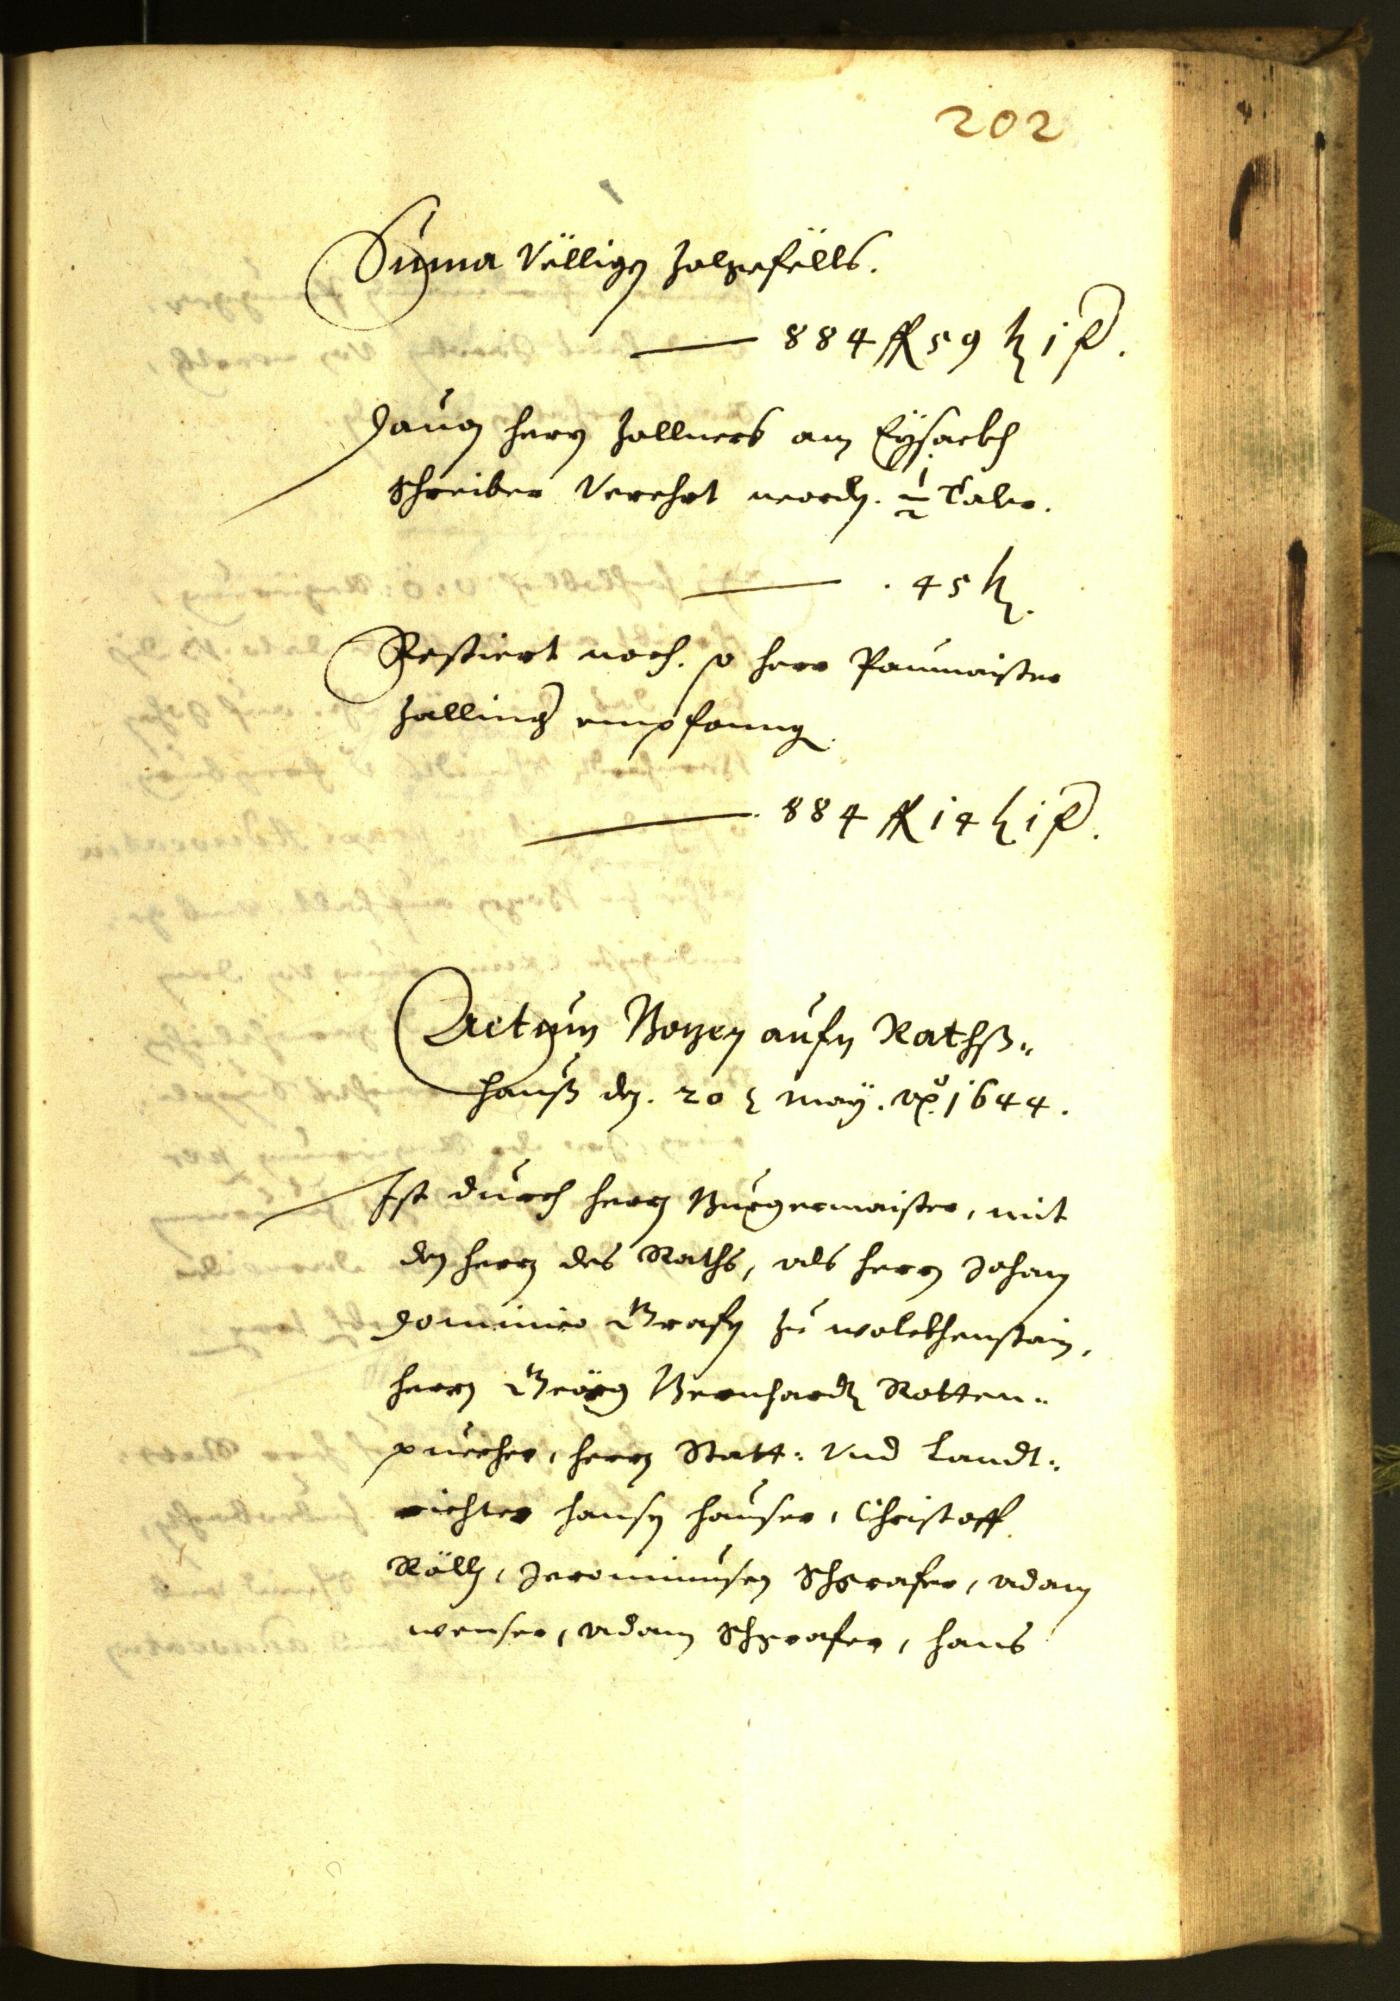 202
Suma Völligen Zolgefölls.
884 fl 59 kr 1 d.
Dauon herrn Zollners am Eÿsackh
schreiber Verehrt worden. 1/2 Taler.
. 45 kr.
Restiert noch. so herr Paumaister
Zallinger empfanng.
884 fl 14 kr 1 d.
Actum Bozen aufn Rathß„
hauß den. 20 t. Maÿ. Ao. 1644.
Ist durch herrn Burgermaister, mit
den herrn des Raths, als herrn Johann
Dominico Grafen zu Wolckhenstain,
herrn Geörg Bernhardt Rotten„
puecher, herrn Statt: Vnd Landt„
richter Hansen Hauser, Christoff
Röll, Jeronimusen Schgrafer, Adam
Wenser, Adam Schgrafer, Hans